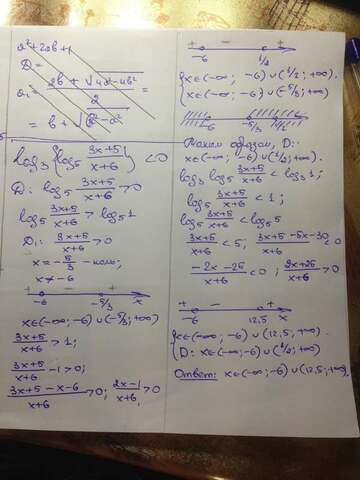 a² + 2ab + 1
D =
a₁ = (2b + √(4a² - 4b²)) / 2 =
= b + √(b² - a²)
log₃(log₅ (3x+5)/(x+6)) < 0
D: log₅ (3x+5)/(x+6) > 0
log₅ (3x+5)/(x+6) > log₅ 1
D₁: (3x+5)/(x+6) > 0
x = -5/3 - коль;
x ≠ -6
+ - +
-6 -5/3 x
x∈(-∞; -6) ∪ (-5/3; +∞)
(3x+5)/(x+6) > 1;
(3x+5)/(x+6) - 1 > 0;
(3x+5-x-6)/(x+6) > 0; (2x-1)/(x+6) > 0
+ - +
-6 1/2
{ x∈(-∞; -6) ∪ (1/2; +∞).
x∈(-∞; -6) ∪ (-5/3; +∞)
-6 -5/3 1/2
Таким образом, D:
x∈(-∞; -6) ∪ (1/2; +∞).
log₃ log₅ (3x+5)/(x+6) < log₃ 1;
log₅ (3x+5)/(x+6) < 1;
log₅ (3x+5)/(x+6) < log₅ 5
(3x+5)/(x+6) < 5; (3x+5-5x-30)/(x+6) < 0
(-2x-25)/(x+6) < 0; (2x+25)/(x+6) > 0
+ - +
-6 12,5 x
{ x∈(-∞; -6) ∪ (12,5; +∞)
D: x∈(-∞; -6) ∪ (1/2; +∞)
Ответ: x∈(-∞; -6) ∪ (12,5; +∞)